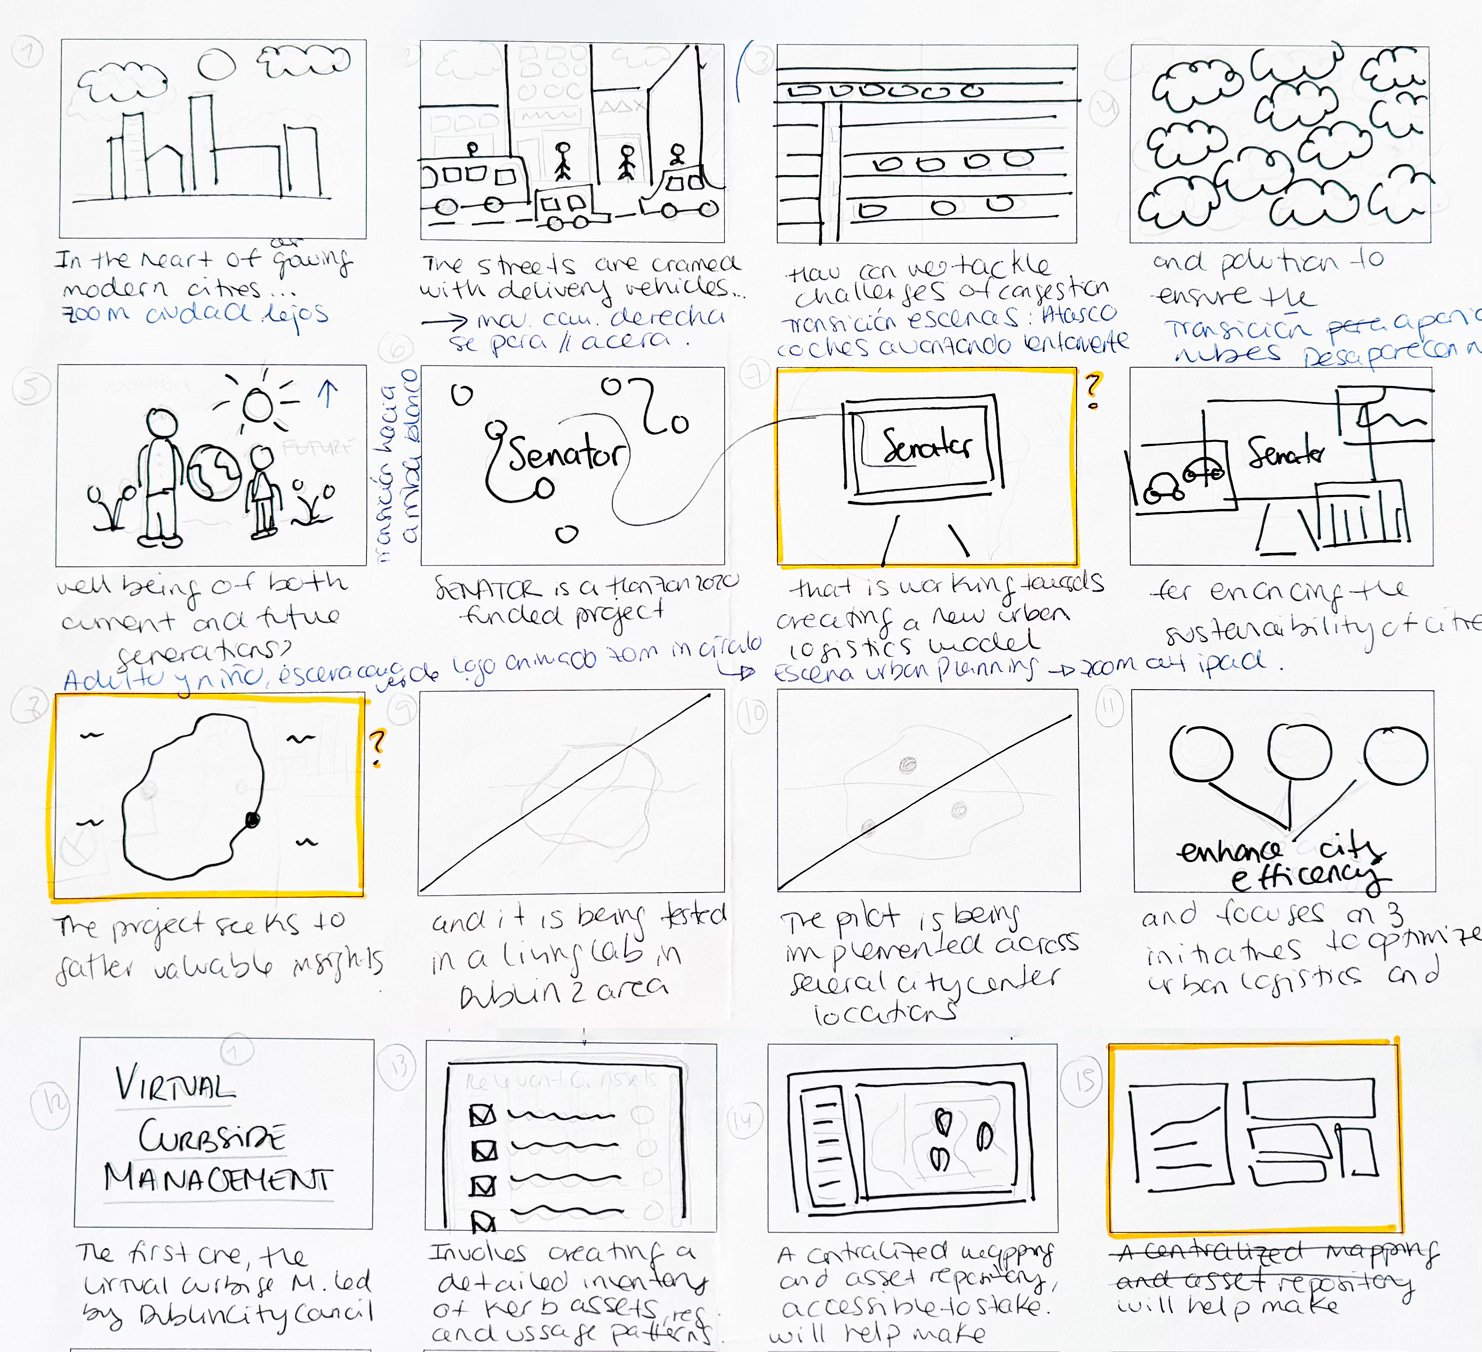 1
In the heart of our gowing
modern cities...
zoom ciudad lejos
The streets are cramed
with delivery vehicles...
→ mov. cam. derecha
se para // acera.
3
How can we tackle
challenges of congestion
Transición escenas: Atasco
coches avanzando lentamente
4
and polution to
ensure the
Transición para
nubes Desaparecen
5
FUTURE
well being of both
current and future
generations?
Adulto y niño, escena
6
Transición hacia
arriba blanco
Senator
SENATOR is a Horizon 2020
funded project
logo animado zoom in círculo
7
?
Senator
that is working towards
creating a new urban
logistics model
Escena urban planning → zoom out ipad.
Senator
for enancing the
sustainability of cities
8
?
The project seeks to
gather valuable insights
9
and it is being tested
in a living lab in
Dublin 2 area
10
The pilot is being
implemented across
several city center
locations
11
enhance city
efficency
and focuses on 3
initiatives to optimize
urban logistics and
12
1
VIRTUAL
CURBSIDE
MANAGEMENT
The first one, the
virtual curbise M. led
by Dublin City Council
13
Relevant Assets
Involves creating a
detailed inventory
of Kerb assets, reg.
and ussage patterns.
14
A centralized mapping
and asset repository,
accessible to stake.
will help make
15
A centralized mapping
and asset repository
will help make